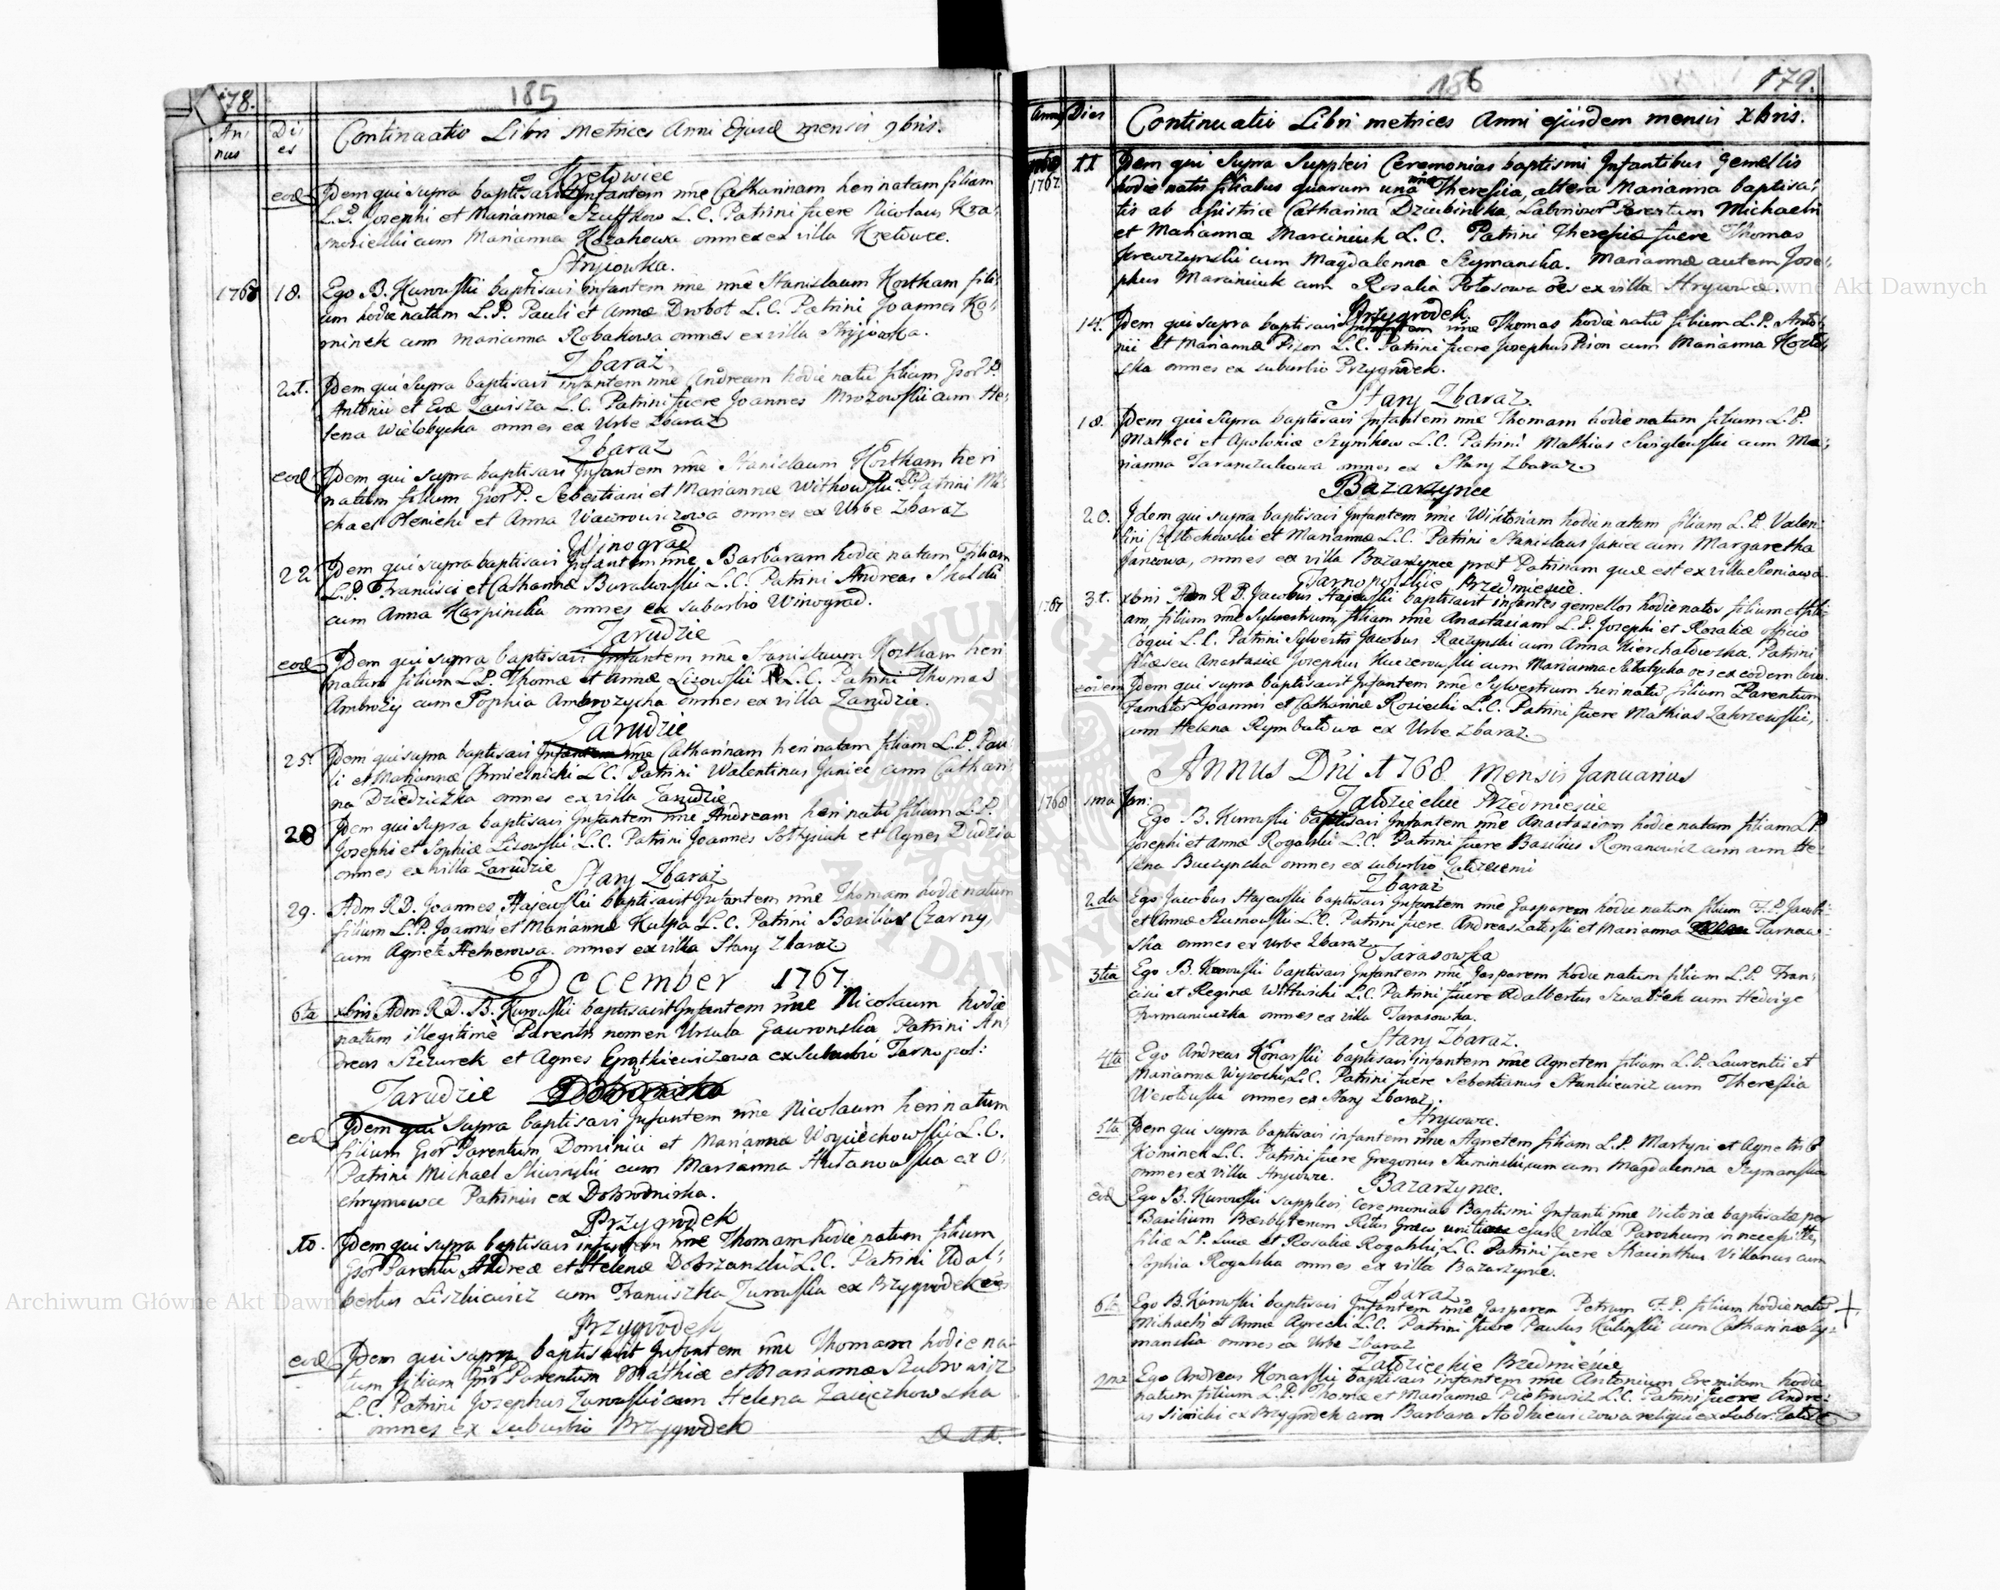 178.
185
Annus
Dies
Continuatio Libri Metrices Anni Ejusd mensis 9bris.
Kretowiec
eod Idem qui supra baptisavi Infantem nne Catharinam heri natam filiam
L.P. Josephi et Mariannæ Szuftkow L.C. Patrini fuere Nicolaus
cum Marianna Kozakowa omnes ex villa Kretowce.
Stryiowka.
1767 18. Ego B. Kurowski baptisavi Infantem nne Stanislaum Kostkam fili-
um hodie natum L.P. Pauli et Annæ Drobot L.C. Patrini Joannes Ko-
minek cum Marianna Robakowa omnes ex villa Stryjowka.
Zbaraż
21. Idem qui supra baptisavi infantem nne Andream hodie natu filium Gsor P.
Antonii et Evæ Zawisza L.C. Patrini fuere Joannes Mrozowski cum He-
lena Wielobycka omnes ex Urbe Zbaraż
Zbaraż
eod Idem qui supra baptisavi Infantem nne Stanislaum Kostkam heri
natum filium Gsor P. Sebestiani et Mariannæ Witkowski L.C. Patrini Mi-
chael Olenicki et Anna Wawrowiczowa omnes ex Urbe Zbaraż
Winograd
22. Idem qui supra baptisavi Infantem nne Barbaram hodie natam Filiam
L.P. Francisci et Catharinæ Buralowski L.C. Patrini Andreas Skalski
cum Anna Karpinska omnes ex suburbio Winograd.
Zarudzie
eod Idem qui supra baptisavi Infantem nne Stanislaum Kostkam heri
natum filium L.P. Thomæ et Annæ Lisowski L.C. Patrini Thomas
Ambroży cum Sophia Ambrozycha omnes ex villa Zarudzie.
Zarudzie
25. Idem qui supra baptisavi Infantem nne Catharinam heri natam filiam L.P. Pau-
li et Mariannæ Chmielnicki L.C. Patrini Walentinus Janiec cum Cathari-
na Dziedziczka omnes ex villa Zarudzie
28 Idem qui supra baptisavi Infantem nne Andream heri natu filium L.P.
Josephi et Sophiæ Lisowski L.C. Patrini Joannes Sołtysiak et Agnes Dudzia
omnes ex villa Zarudzie
Stary Zbaraż
29. Adm R.D. Joannes Hajewski baptisavit Infantem nne Thomam hodie natum
filium L.P. Joannis et Mariannæ Kulpa L.C. Patrini Basilius Czarny,
cum Agnete Helnerowa omnes ex villa Stary Zbaraż
December 1767.
6ta xbris Adm R.D. B. Kurowski baptisavit Infantem nne Nicolaum hodie
natum illegitime Parentis nomen Ursula Gawronska Patrini An-
dreas Szczurek et Agnes ex Suburbio Tarnopol:
Zarudzie
eod Idem qui Supra baptisavi Infantem nne Nicolaum heri natum
filium Gsor Parentum Dominici et Mariannæ Woyciechowski L.C.
Patrini Michael Sliwinski cum Marianna Hulanowska ex O-
chrymowce Patrinus ex Dobrodniska.
Przygrodek
10. Idem qui supra baptisavi infantem nne Thomam hodie natum filium
Gsor Parentu Andreæ et Helenæ Dobrzanski L.C. Patrini Adal-
bertus Liszkiewicz cum Franciszka Zurowska ex Przygrodek oes
Przygrodek
eod Idem qui supra baptisavit Infantem nne Thomam hodie na-
tum filium Gsor Parentum Mathiæ et Mariannæ Szubrowicz
L.C. Patrini Josephus Zurowski cum Helena Zaięczkowska
omnes ex suburbio Przygrodek
186
179.
Annus Dies
Continuatio Libri metrices Anni ejusdem mensis Xbris.
1767 11 Idem qui supra supplevi Ceremonias baptismi Infantibus Gemellis
hodie natis filiabus quarum una nne Theressia, altera Marianna baptisa-
tis ab obstetrice Catharina Dziubinska, Laboriosor Parentum Michaelis
et Mariannæ Marciniuk L.C. Patrini Theresiæ fuere Thomas
Krewczynski cum Magdalenna Szymanska. Mariannæ autem Jose-
phus Marciniuk cum Rosalia Potosowa oes ex villa Stryiowce.
Przygrodek
14. Idem qui supra baptisavi Infantem nne Thomas hodie natu filium L.P. Anto-
nii et Mariannæ Pison L.C. Patrini fuere Josephus Pison cum Marianna
ska omnes ex suburbio Przygrodek.
Stary Zbaraż.
18. Idem qui supra baptisavi Infantem nne Thomam hodie natum filium L.P.
Mathei et Apoloniæ Szymkow L.C. Patrini Mathias Swiglewski cum Ma-
rianna Taranczukowa omnes ex Stary Zbaraż.
Bazarzynce
20. Idem qui supra baptisavi Infantem nne Wiktoriam hodie natam filiam L.P. Valen-
tini Częstochowski et Mariannæ L.C. Patrini Stanislaus Janiec cum Margaretha
Jancowa, omnes ex villa Bazarzynce præt Patrinam quæ est ex villa Sieniawa.
Tarnopolskie Przedmiescie.
1767 31. xbris Adm R.D. Jacobus Hajewski baptisavit infantes gemellos hodie natos filium et fili-
am, filium nne Sylvestrum, filiam nne Anastasiam L.P. Josephi et Rosaliæ officio
Coqui L.C. Patrini Sylvestri Jacobus Raczynski cum Anna Wierchałowska, Patrini
filiæ seu Anastasiæ Josephus Kuczerowski cum Marianna oes ex eodem loco.
eodem Idem qui supra baptisavit Infantem nne Sylvestrum heri natu filium Parentum
Famator Joannis et Catharinæ Kosiecki L.C. Patrini fuere Mathias Zakrzewski,
cum Helena Rymbałowa ex Urbe Zbaraż.
Annus Dni 1768 Mensis Januarius
1768 1ma Jan:
Załózieckie Przedmiescie
Ego B. Kurowski baptisavi Infantem nne Anastasiam hodie natam filiam L.P.
Josephi et Annæ Rogalski L.C. Patrini fuere Basilius Romanowicz cum He-
lena Buczynska omnes ex suburbio
Zbaraż
2da Ego Jacobus Hajewski baptisavi Infantem nne Gasparem hodie natum filium F.P. Jacobi
et Annæ Szumowski L.C. Patrini fuere Andreas Zatorski et Marianna Tarnow-
ska omnes ex Urbe Zbaraż.
Tarasowka
3tia Ego B. Kurowski baptisavi Infantem nne Gasparem hodie natum filium L.P. Fran-
cisci et Reginæ Wittwicki L.C. Patrini fuere Adalbertus cum Hedvige
Furmaniuczka omnes ex villa Tarasowka.
Stary Zbaraż.
4ta Ego Andreas Konarski baptisavi infantem nne Agnetem filiam L.P. Laurentii et
Marianna Wysocki L.C. Patrini fuere Sebestianus Stankiewicz cum Theressia
Wesołowska omnes ex Stary Zbaraż.
Stryiowce.
5ta Idem qui supra baptisavi infantem nne Agnetem filiam L.P. Martyni et Agnetis
Kominek L.C. Patrini fuere Gregorius cum Magdalenna Szymanska
omnes ex villa Stryiowce.
Bazarzynce.
eod Ego B. Kurowski supplevi Ceremonias Baptismi Infanti nne Victoriæ baptisatæ per
Basilium Presbyterum Ritus Græco uniti ejusd villæ Parochum in necessitte,
filiæ L.P. Lucæ et Rosaliæ Rogalski L.C. Patrini fuere Hiacinthus Villanus cum
Sophia Rogalska omnes ex villa Bazarzynce.
Zbaraż
6ta Ego B. Kurowski baptisavi Infantem nne Gasparem Petrum F.P. filium hodie natu
Michaelis et Annæ L.C. Patrini fuere Paulus Kulinski cum Catharina Szy-
manska omnes ex Urbe Zbaraż
Załózieckie Przedmieście
7ma Ego Andreas Konarski baptisavi infantem nne Antonium Eremitam hodie
natum filium L.P. Thomæ et Mariannæ Pietrusicz L.C. Patrini fuere Andre-
as Siwicki ex Przygrodek cum Barbara reliqui ex Subur:
Archiwum Główne Akt Dawnych